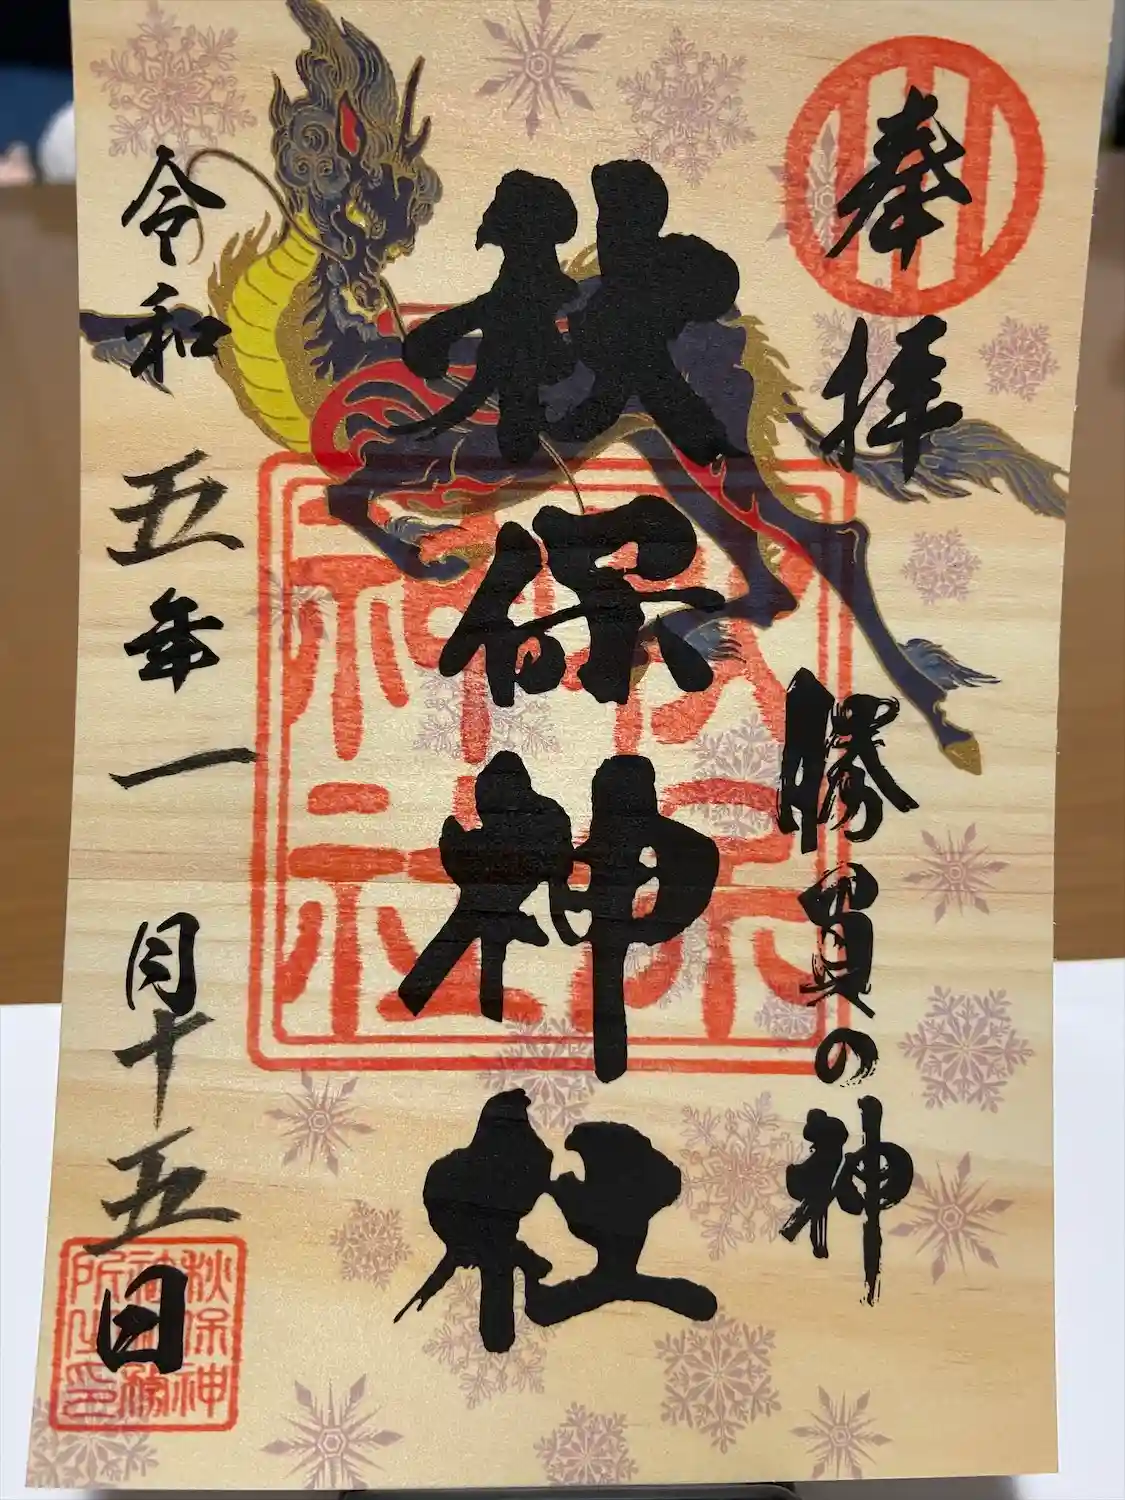 奉拝
勝負の神
秋保神社
秋保神社
令和五年一月十五日
秋保神
社務
所之印